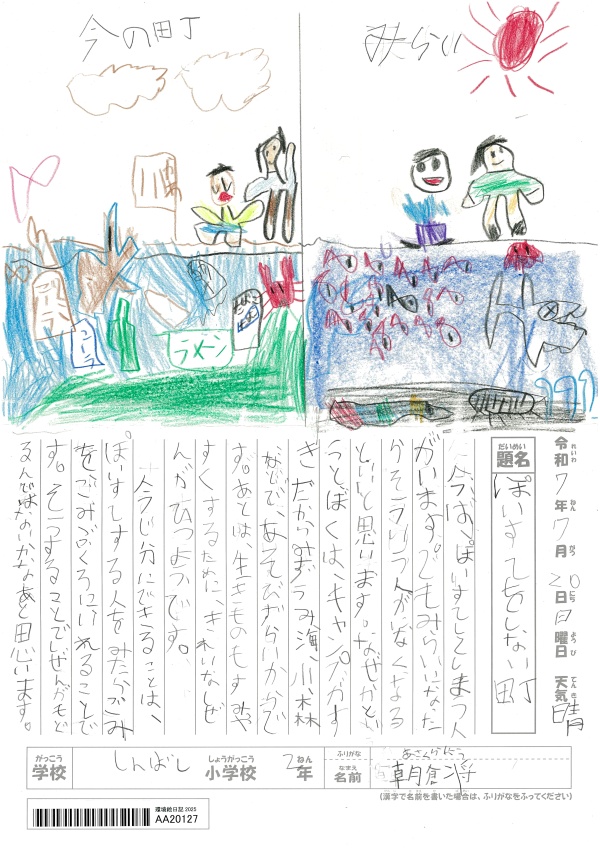 今の町
みらい
川
ラメーン
コーラ
令和7年7月20日日曜日 天気 晴
れいわ ねん がつ にち ようび てんき
だいめい
題名
ぽいすてをしない町
今は、ぽいすてしてしまう人
がいます。でもみらいになった
らそういう人がいなくなる
といいと思います。なぜかとい
うとぼくは、キャンプがす
きだからみずうみ海、小、林
などで、あそびたいからで
す。あとは、生きものもすみや
すくするために、きれいなしぜ
んがひつようです。
今じ分にできることは、
ぽいすてする人をみたらごみ
をごみぶくろにいれることで
す。そうすることでしぜんがもど
るんではないかなあと思います。
がっこう
学校
しんばし
しょうがっこう
小学校
2年
ねん
ふりがな
あさくらけんしょう
なまえ
名前
朝倉
将
(漢字で名前を書いた場合は、ふりがなをふってください)
環境絵日記 2025
AA20127